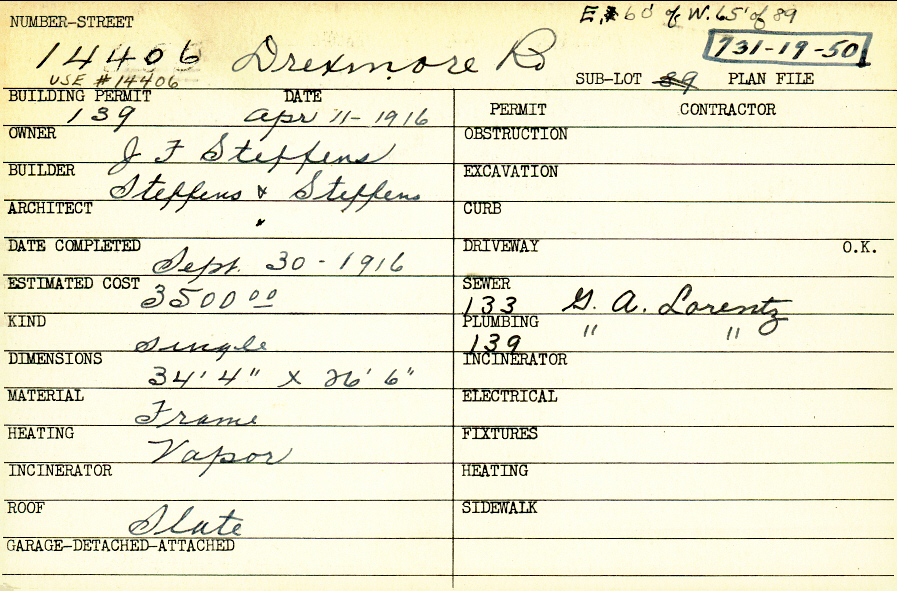 E. 60' of W. 65' of 89
NUMBER-STREET
14406 Drexmore Rd
731-19-50
USE #14406
SUB-LOT 89 PLAN FILE
BUILDING PERMIT DATE
139 Apr 11-1916
OWNER
J F Steffens
BUILDER
Steffens & Steffens
ARCHITECT
"
DATE COMPLETED
Sept. 30-1916
ESTIMATED COST
3500 00
KIND
Single
DIMENSIONS
34' 4" X 26' 6"
MATERIAL
Frame
HEATING
Vapor
INCINERATOR
ROOF
Slate
GARAGE-DETACHED-ATTACHED
PERMIT CONTRACTOR
OBSTRUCTION
EXCAVATION
CURB
DRIVEWAY O.K.
SEWER
133 G. A. Lorentz
PLUMBING
139 " "
INCINERATOR
ELECTRICAL
FIXTURES
HEATING
SIDEWALK